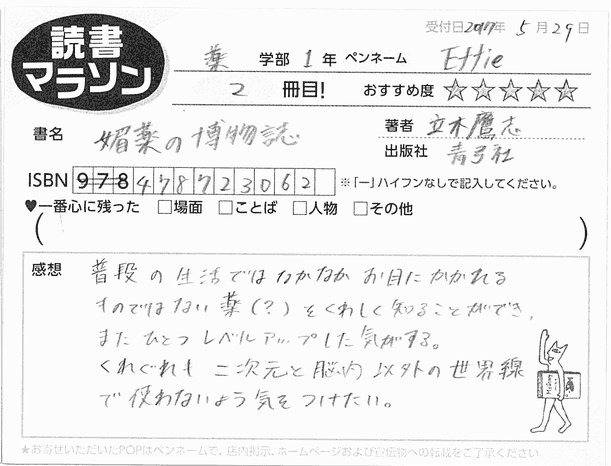 受付日2017年 5月29日
読書
マラソン
薬 学部 1年 ペンネーム Effie
2 冊目! おすすめ度 ☆☆☆☆☆
書名 媚薬の博物誌
著者 立木鷹志
出版社 青弓社
ISBN 978478723062 ※「ー」ハイフンなしで記入してください。
♥一番心に残った □場面 □ことば □人物 □その他
( )
感想
普段の生活ではなかなかお目にかかれる
ものではない薬(?)をくわしく知ることができ、
またひとつレベルアップした気がする。
くれぐれも二次元と脳内以外の世界線
で使わないよう気をつけたい。
★お寄せいただいたPOPはペンネームで、店内掲示、ホームページおよび宣伝物への転載をご了承ください